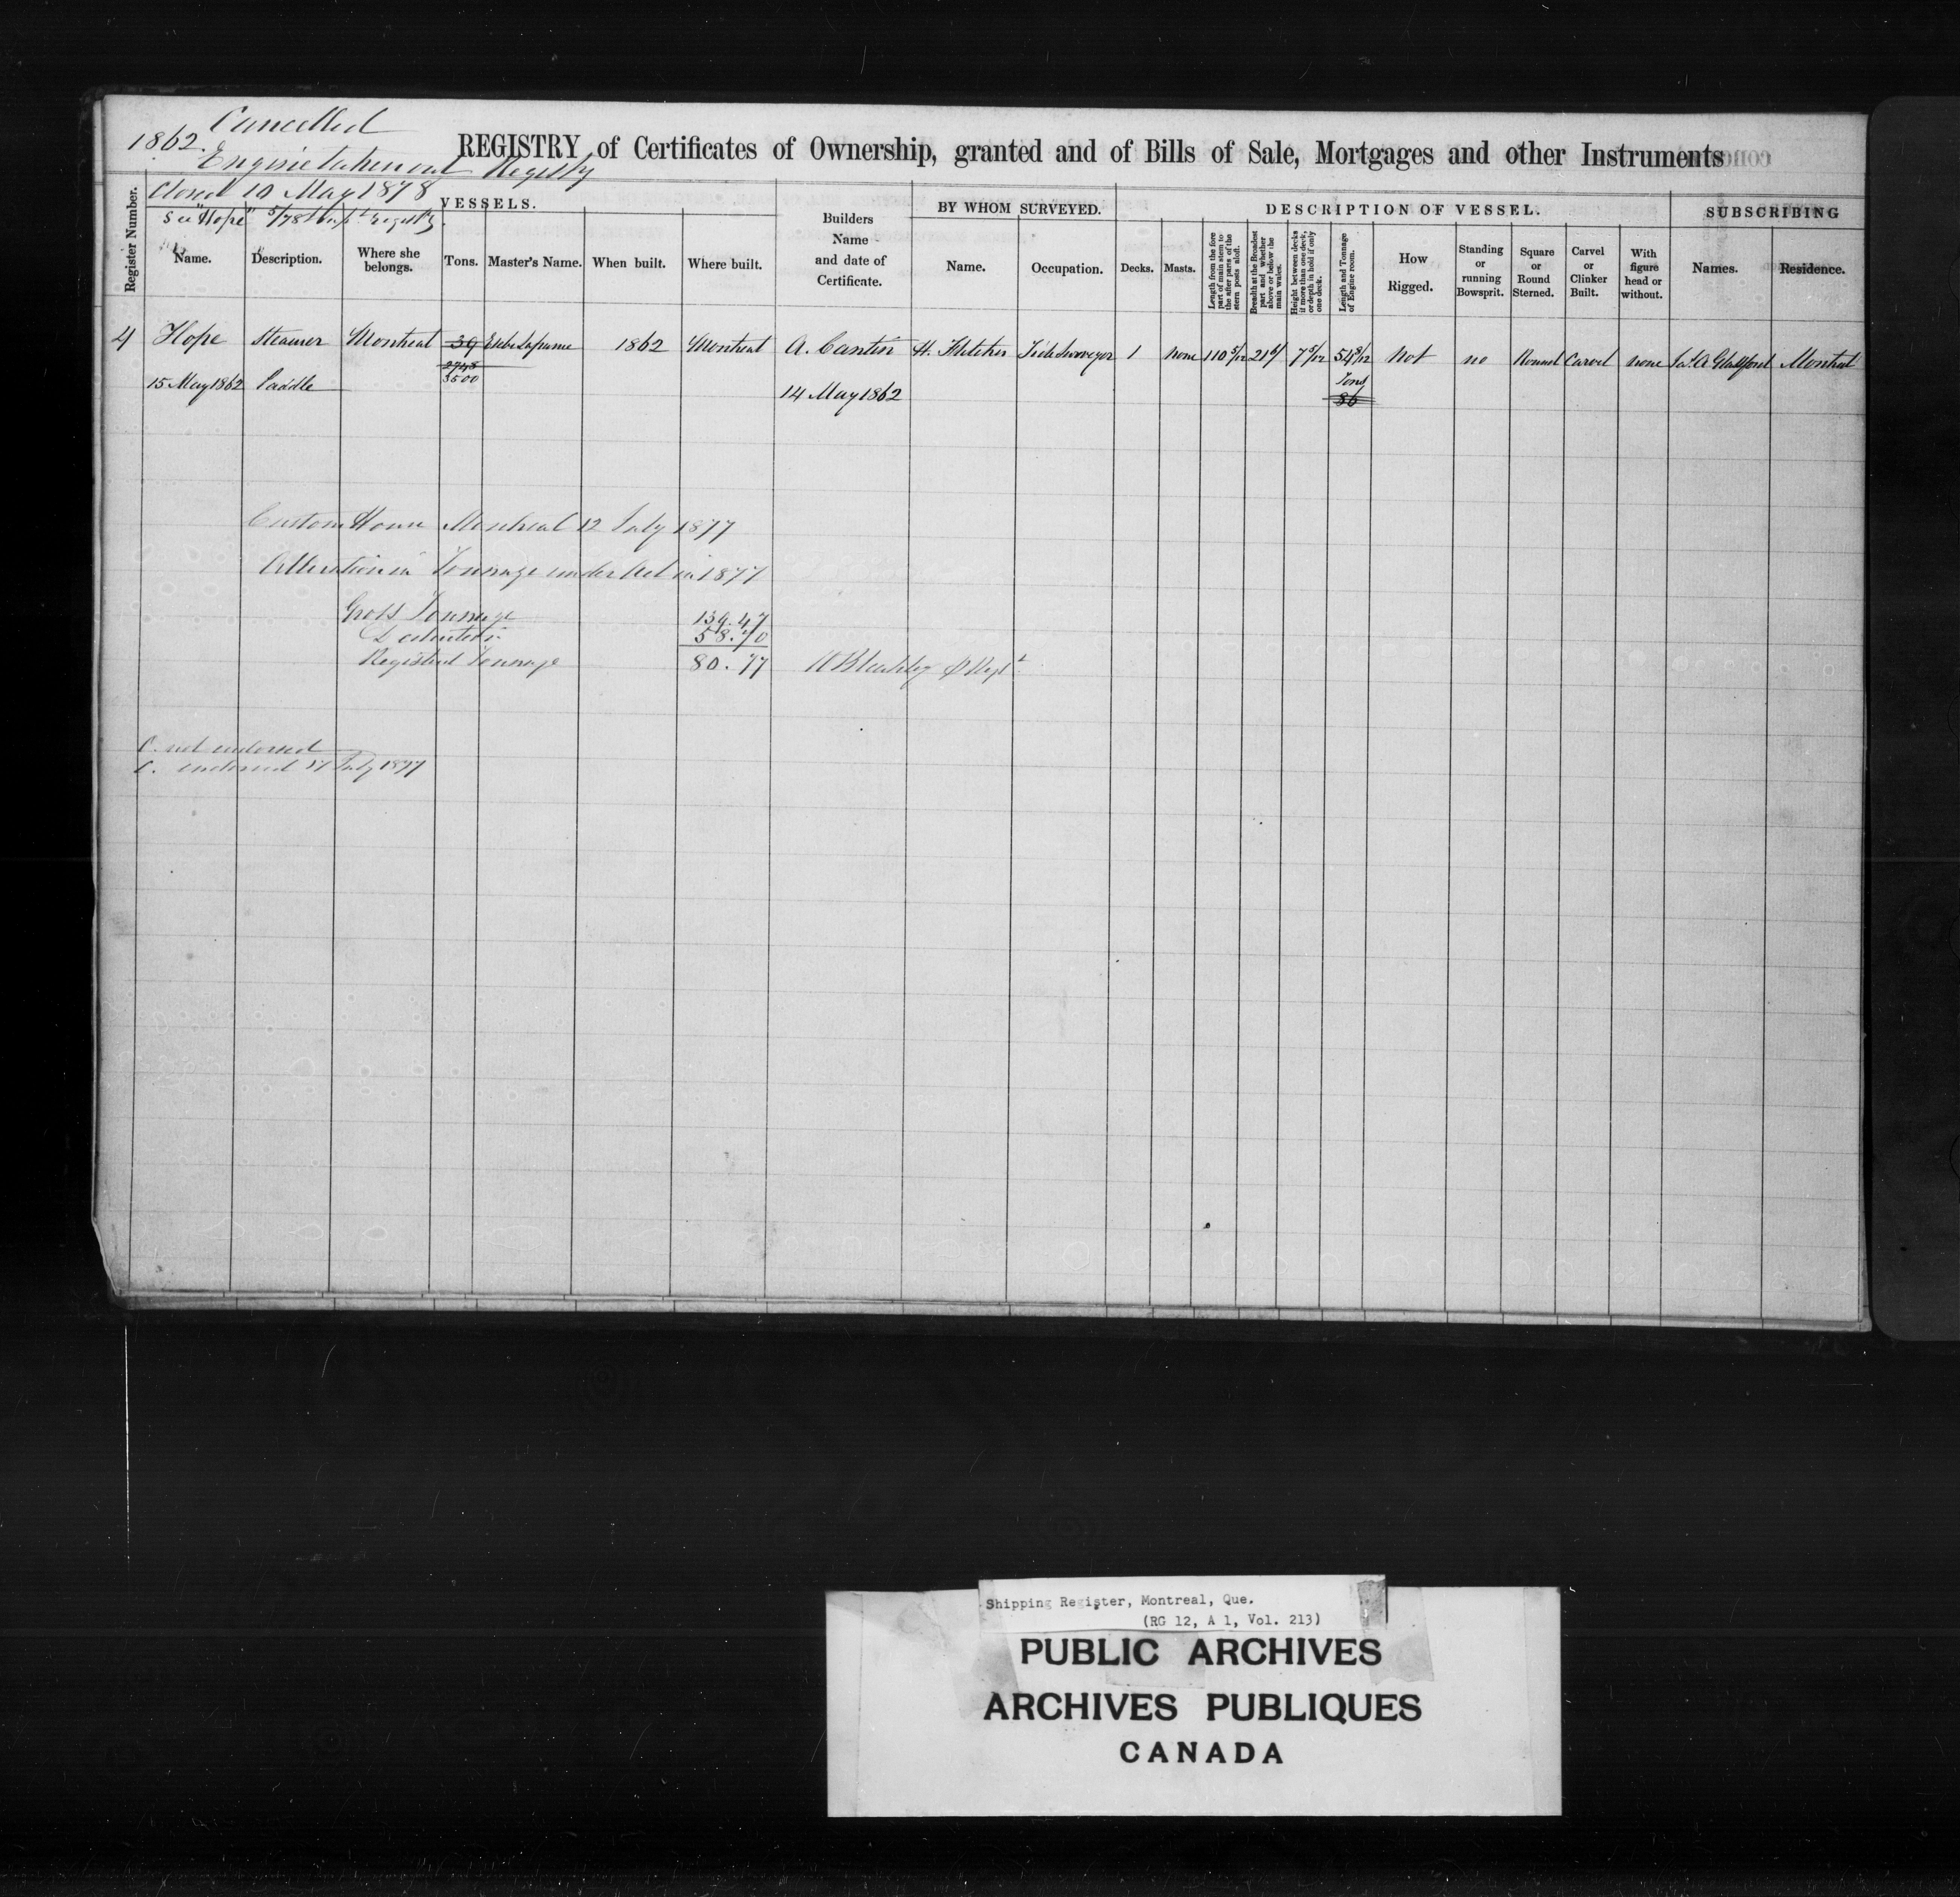 Cancelled
1862.
Engine taken out Registry
REGISTRY of Certificates of Ownership, granted and of Bills of Sale, Mortgages and other Instruments
Closed 10 May 1878
See "Hope" 5/78
Register Number.
VESSELS.
Name.
Description.
Where she belongs.
Tons.
Master's Name.
When built.
Where built.
Builders
Name
and date of
Certificate.
BY WHOM SURVEYED.
Name.
Occupation.
DESCRIPTION OF VESSEL.
Decks.
Masts.
Length from the fore
part of main stem to
the after parts of the
stern posts aloft.
Breadth at the Broadest
part and whether
above or below the
main wales.
Height between decks
if more than one deck,
or depth in hold if only
one deck.
Length and Tonnage
of Engine room.
How
Rigged.
Standing
or
running
Bowsprit.
Square
or
Round
Sterned.
Carvel
or
Clinker
Built.
With
figure
head or
without.
SUBSCRIBING
Names.
Residence.
4 Hope Steamer Montreal 39 1862 Montreal A. Cantin H. Fletcher Tide Surveyor 1 none 110 5/12 21 7 5/12 54 8/12 not no Round Carvel none Jas. A Glassford Montreal
2748
3500
Tons
86
15 May 1862 Paddle
14 May 1862
Custom House Montreal 12 July 1877
Alteration in Tonnage under Act in 1877
Gross Tonnage 139.47
Deduction 58.70
Registered Tonnage 80.77
C. not endorsed
C. endorsed 17 July 1877
Shipping Register, Montreal, Que.
(RG 12, A 1, Vol. 213)
PUBLIC ARCHIVES
ARCHIVES PUBLIQUES
CANADA